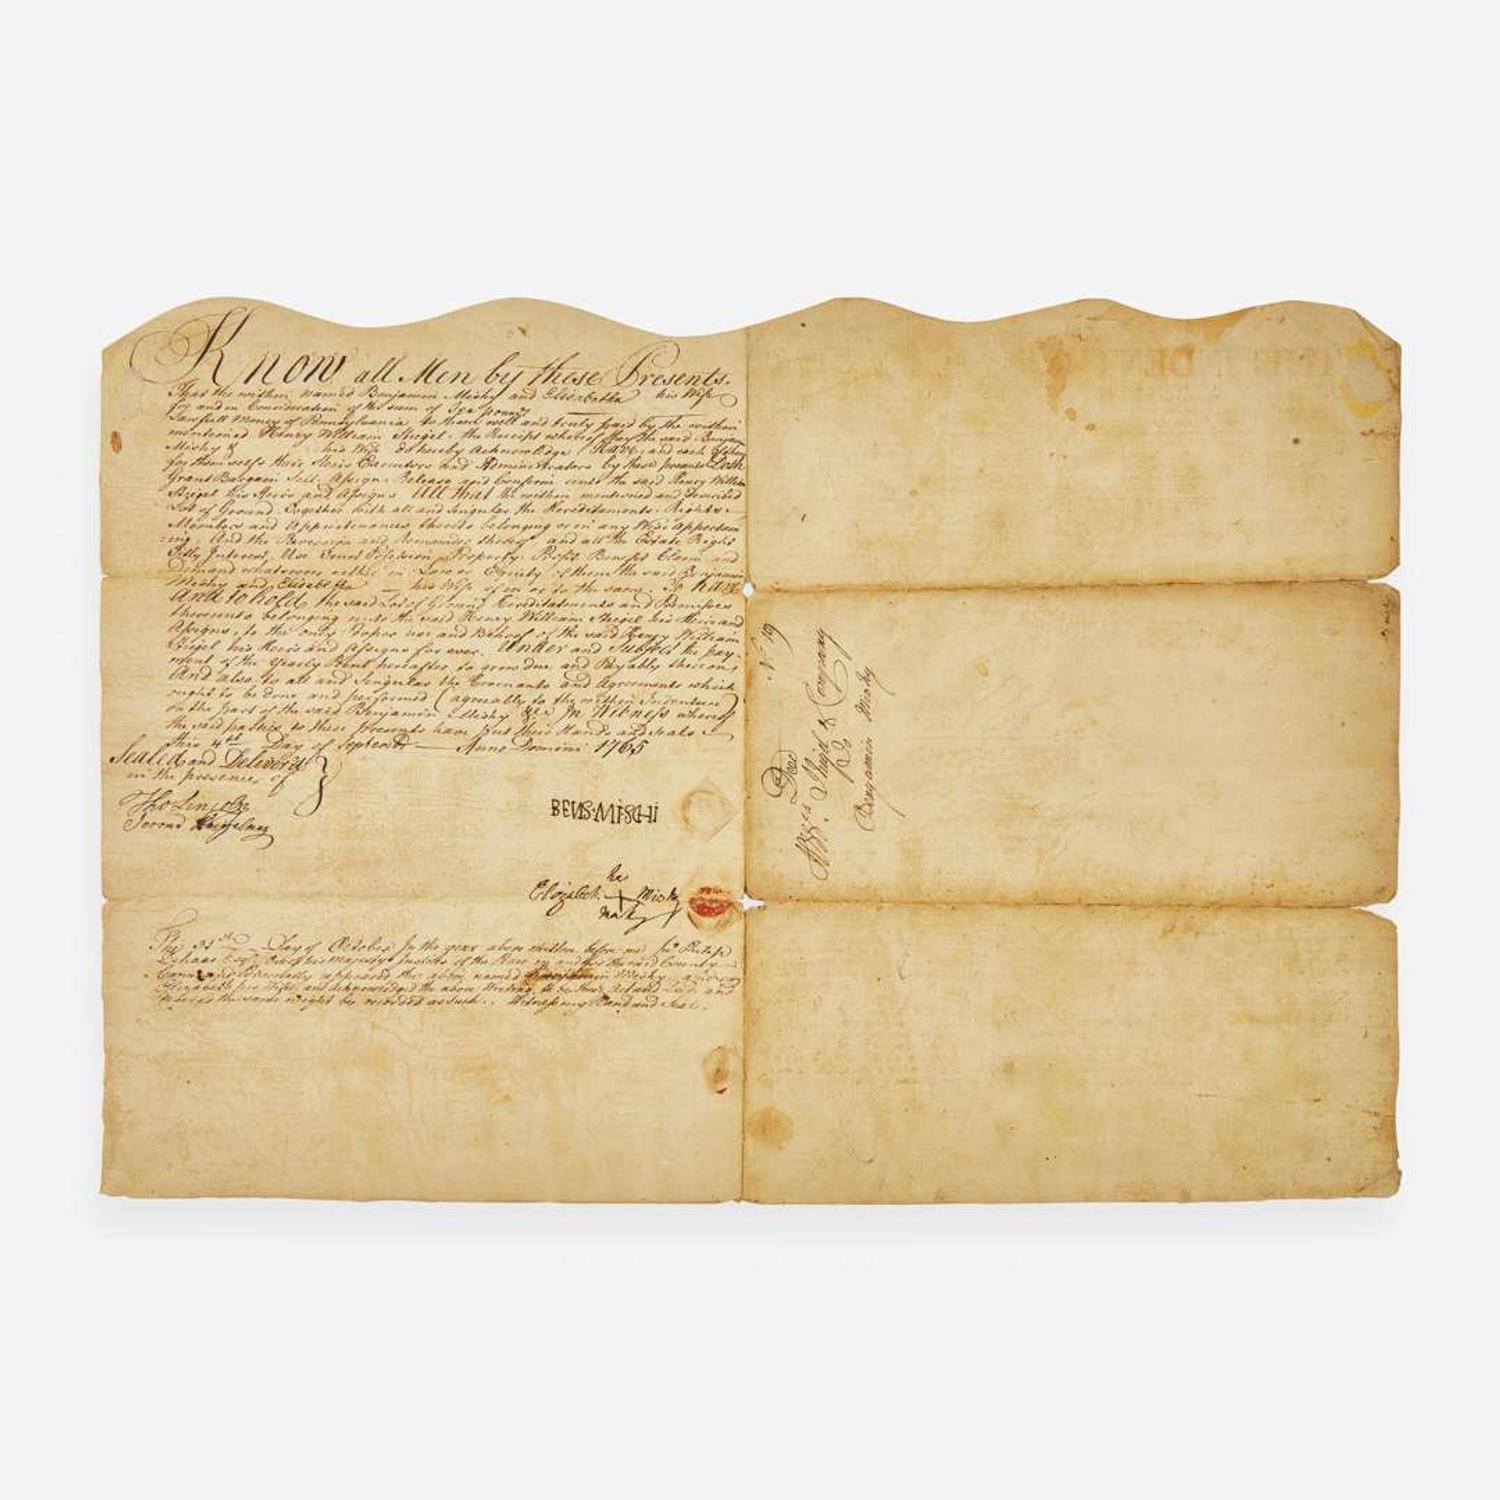 Know all Men by these Presents.
That the within named Benjamin Mishy and Elisabetha his Wife
for and in Consideration of the sum of pounds
Lawfull Money of Pennsylvania to them well and truly paid by the within
mentioned Henry William Stiegel the Receipt whereof the said Benjamin
Mishy & his Wife do hereby Acknowledge Have and each of them
for themselfs their Heirs Executors and Administrators by these presents Doth
Grant Bargain Sell Assign Release and Confirm unto the said Henry William
Stiegel his Heirs and Assigns All that the within mentioned and described
Lot of Ground Together with all and singular the Hereditaments Rights
Members and Appurtenances thereto belonging or in any Wise appertain
ing. And the Reversion and Remainder thereof and all the Estate Right
Title Interest, Use Possession Property Profit Benefit Claim and
Demand whatsoever either in Law or Equity of them the said Benjamin
Mishy and Elisabetha his Wife of in or to the same. To have
And to hold the said Lot of Ground Hereditaments and Premises
thereunto belonging unto the said Henry William Stiegel his Heirs and
Assigns, to the only Proper use and Behoof of the said Henry William
Stiegel his Heirs and Assigns for ever. Under and Subject the pay-
ment of the Yearly Rent hereafter to grow due and Payable thereon
And also to all and Singular the Covenants and Agreements which
ought to be done and performed (agreeably to the within Indenture)
on the part of the said Benjamin Mishy &c In Witness whereof
the said parties to these presents have put their Hands and Seals
this 4th Day of September Anno Domini 1765
Sealed and Deliver'd
in the presence of
Tho Lincoln
BENS·MISCHI
her
Elizabeth + Mishy
mark
The 31st Day of October In the year above written before me
Esqr of his Majestys Justices of the Peace in and for the said County
Personally appeared the above named Benjamin Mishy and
Elizabeth his Wife and Acknowledged the above Writing to be their Act and Deed and
desired the same might be recorded as such. Witness my Hand and Seal.
No 19
Deed
Messrs Stiegel & Company
Benjamin Mishy